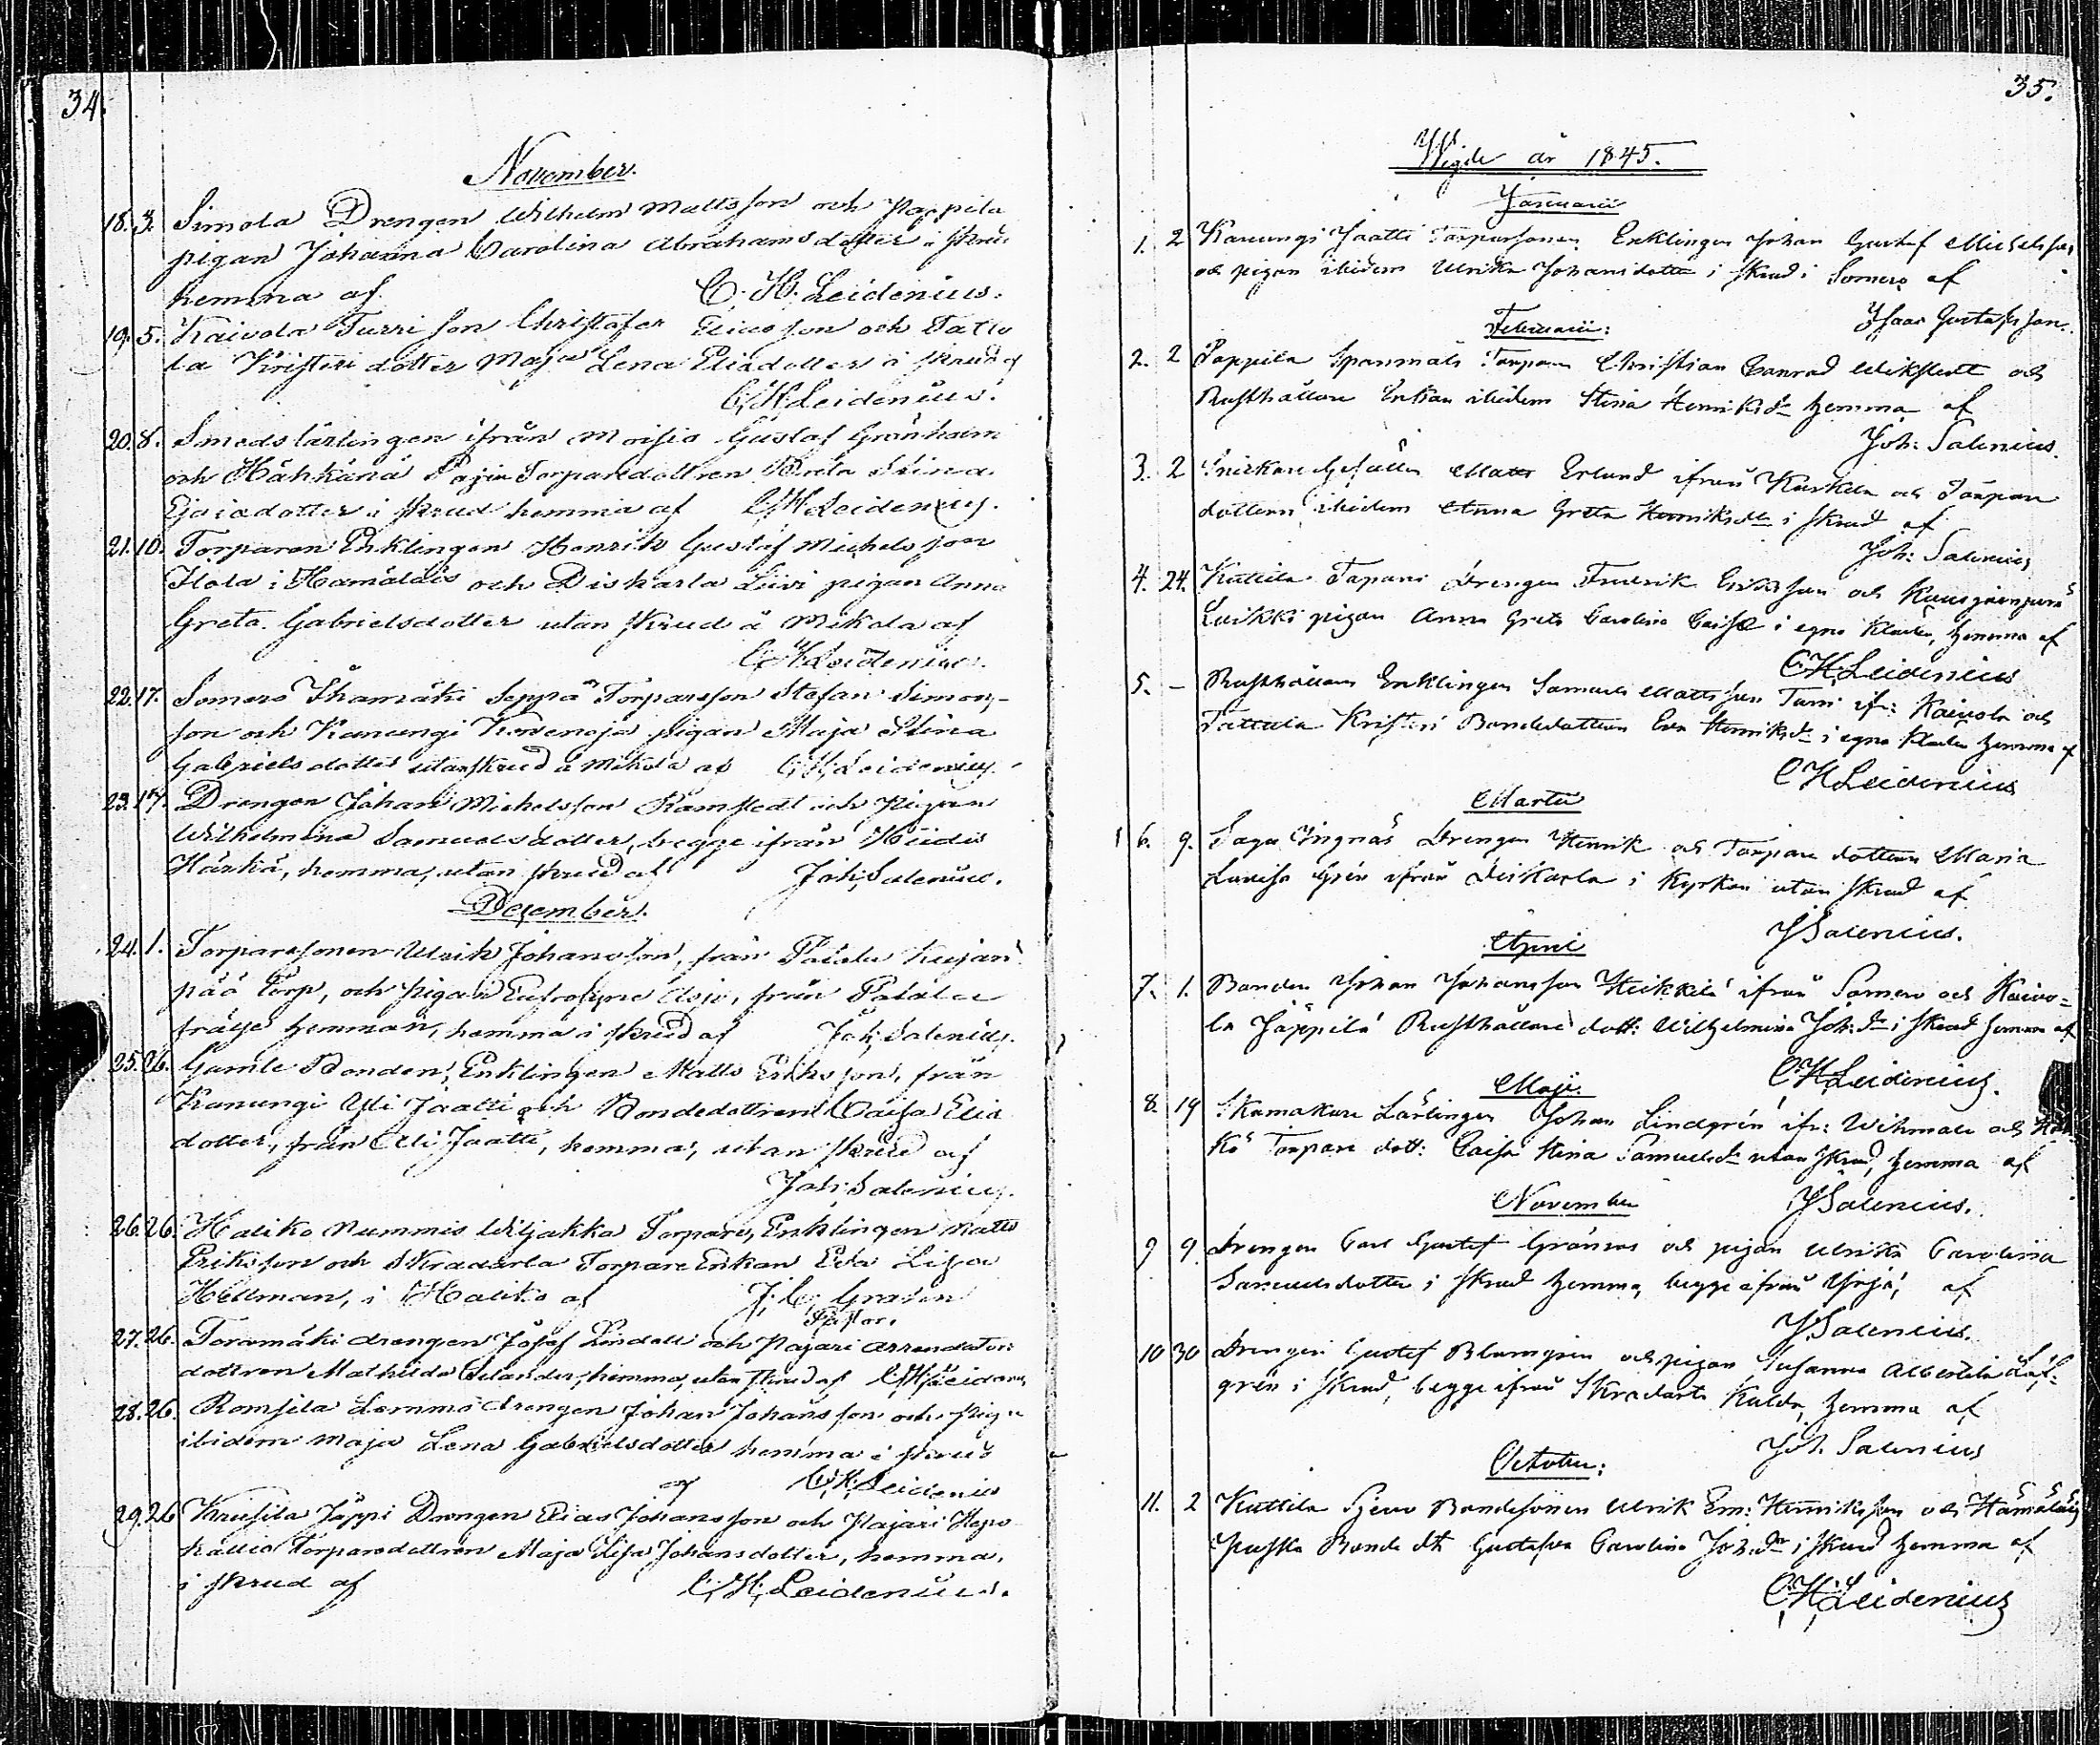 34.
November.
18. 3. Simola Drengen Wilhelm Mattsson och Pappila
pigan Johanna Carolina Abrahamsdotter i skrud
hemma af C. H. Leidenius.
19. 5. Kaivola Turri son Christafer Elias son och Tattu
la Kristeri dotter Maja Lena Eliadotter i skrud af
C. H. Leidenius.
20. 8. Smedslärlingen ifrån Moisio Gustaf Granholm
och Hähkänä Torparedottren Stina
dotter i skrud hemma af C H Leidenius.
21. 10. Torparen Enklingen Henrik Gustaf Michelsson
Ilola i Hamälais och Diskarla Livi pigan Anna
Greta Gabrielsdotter utan skrud å Mikola af
C. H. Leidenius.
22. 17. Somero Ihamäki Seppä Torparesson Stefan Simons-
son och Kanungi pigan Maja Stina
Gabrielsdotter utan skrud å Mikola af C. H. Leidenius.
23. 17. Drengen Johan Michelsson Ramstedt och Pigan
Wilhelmina Samuelsdotter, begge ifrån
Härkä, hemma, utan skrud af Joh. Salenius.
December.
24. 1. Torparesonen Ulrik Johansson, från Palala Kujan
pää torp, och pigan Eufrosyne från Palala
frälse hemman, hemma i skrud af Joh. Salenius.
25. 26. Gamle Bonden, Enklingen Matts Eriksson, från
Kanungi Yli Jaatti och Bondedottren Caisa Elia
dotter, från Ali Jaatti, hemma, utan skrud af
Joh. Salenius.
26. 26. Haliko Nummis Wiljakka Torpare, Enklingen Matts
Eriksson och Skradarla Torpare Enkan Eva Lisa
Hellman, i Haliko af J. C. Grasen
Pastor.
27. 26. Toromäki drengen Josef Lindell och Pajari Arrendators
dottren Mathilda Selander, hemma, utan skrud af C. H. Leidenius
28. 26. Romsila Lemmo drengen Johan Johansson och Piga
ibidem Maja Lena Gabrielsdotter hemma i skrud
af C. H. Leidenius
29. 26 Kruusila Jäppi Drengen Elias Johansson och Pajari Hepo
kallio Torparedottren Maja Lisa Johansdotter, hemma,
i skrud af C. H. Leidenius.
35.
Wigde år 1845.
Januarii
1. 2 Kanungi Jaatti Torparsonen Enklingen Johan Gustaf Michelsson
och pigan ibidem Ulrika Johansdotter i skrud i Somero af
Isaac Gustafsson.
Februarii:
2. 2 Pappila Spanmäls Torpare Christian Conrad Wikstedt och
Rusthållare Enkan ibidem Stina Henriksdr hemma af
Joh. Salenius.
3. 2 Snickare Gesällen Matts Erlund ifrån Kurkela och Torpare
dottren ibidem Anna Greta Henriksdr i skrud af
Joh: Salenius
4. 24. Kuttila Tapani Drengen Fredrik Eriksson och
Luikki pigan Anna Greta Carolina Caisa i egna kläder, hemma af
C. H. Leidenius
5. - Rusthållaren Enklingen Samuel Mattsson Turri ifr: Kaivola och
Tattula Kristeri Bondedottren Eva Henriksdr i egna kläder hemma af
C H Leidenius
Martii
6. 9. Saga Ingnäs Drengen Henrik och Torpare dottren Maria
Lovisa Grén ifrån Diskarla i Kyrkan utan skrud af
J Salenius.
April
7. 1. Bonden Johan Johansson Heikkilä ifrån Somero och Kaivo=
la Jäppilä Rusthållare dott: Wilhelmina Joh:dr i skrud hemma af
C H Leidenius.
Maji.
8. 19 Skomakare Lärlingen Johan Lindgrén ifr: Wihmalo och
Torpare dott: Caisa Stina Samuelsdr utan skrud, hemma af
J Salenius.
November
9 9. Drengen Carl Gustaf Granroos och pigan Ulrika Carolina
Samuelsdotter i skrud hemma, begge ifrån Yrjä, af
J. Salenius.
10 30 Drengen Gustaf Blomgrén och pigan Susanna Albertila Löf=
grén i skrud, begge ifrån Skradarla Kulda, hemma af
Joh. Salenius
October:
11. 2 Kuttila Bondesonen Ulrik Em: Henriksson och Hämäläis
Bonde dtr Gustafva Carolina Joh:dr i skrud hemma af
C H Leidenius